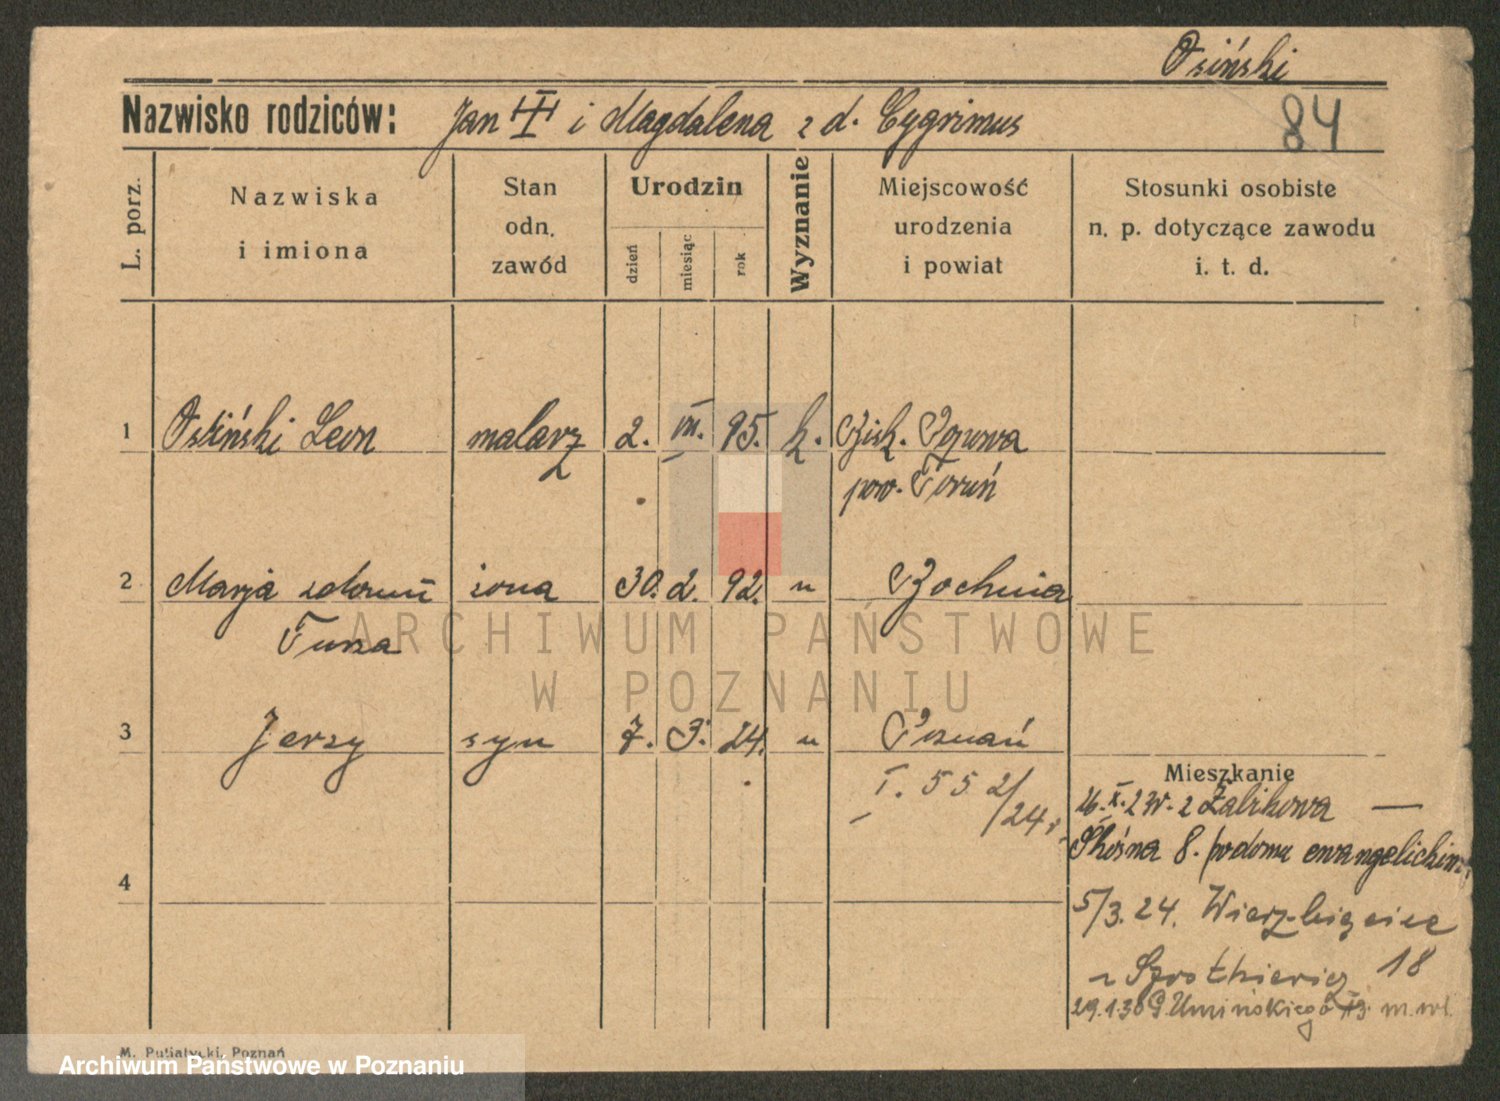 Osiński
Nazwisko rodziców: Jan III i Magdalena z d. Cygrimus
84
L. porz.
Nazwiska
i imiona
Stan
odn.
zawód
Urodzin
dzień
miesiąc
rok
Wyznanie
Miejscowość
urodzenia
i powiat
Stosunki osobiste
n. p. dotyczące zawodu
i. t. d.
1 Osiński Leon malarz 2. VII. 95. k. Bisk. Papowa
pow. Toruń
2 Marja zdomu żona 30. 2. 92. " Bochnia
Tursa
3 Jerzy syn 7. 3. 24. " Poznań
I. 552/
/24r.
Mieszkanie
26. X. 23r. z Żabikowa —
Skośna 8. podomu ewangelickim.
4
5/3. 24. Wierzbięcice
18
29.1.36 G. Umińskiego m. wł.
M. Putiatycki, Poznań
ARCHIWUM PAŃSTWOWE
W POZNANIU
Archiwum Państwowe w Poznaniu